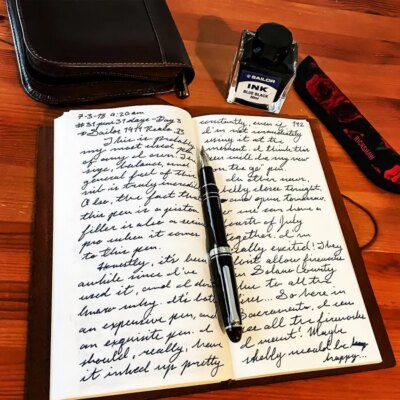 7-3-18 9:20am
#31pens31days - Day 3
Sailor 1911 Realo
This is probably
my most used pen
of any I own. The
size, balance, and
general feel of this
nib is truly incredible
Also, the fact that
this pen is a piston
filler is also a
pro when it comes
to this pen.
Honestly, it's been
awhile since I've
used it, and I don't
know why. It's both
an expensive pen, and
an exquisite pen. I
should, really, have
it inked up pretty
constantly, even if 142
I'm not immediately
using it at the
moment. I think this
pen will be my new
"on the go" pen.
In other news,
Shelby closes tonight,
and opens tomorrow.
we can have a
Fourth of July
together. I'm
really excited! They
don't allow fireworks
in Solano County
due to all the
fires... So here in
Sacramento, I can
see all the fireworks
I want! Maybe
Shelby would be
happy...
SAILOR
INK
BLUE BLACK
RICKSHAW